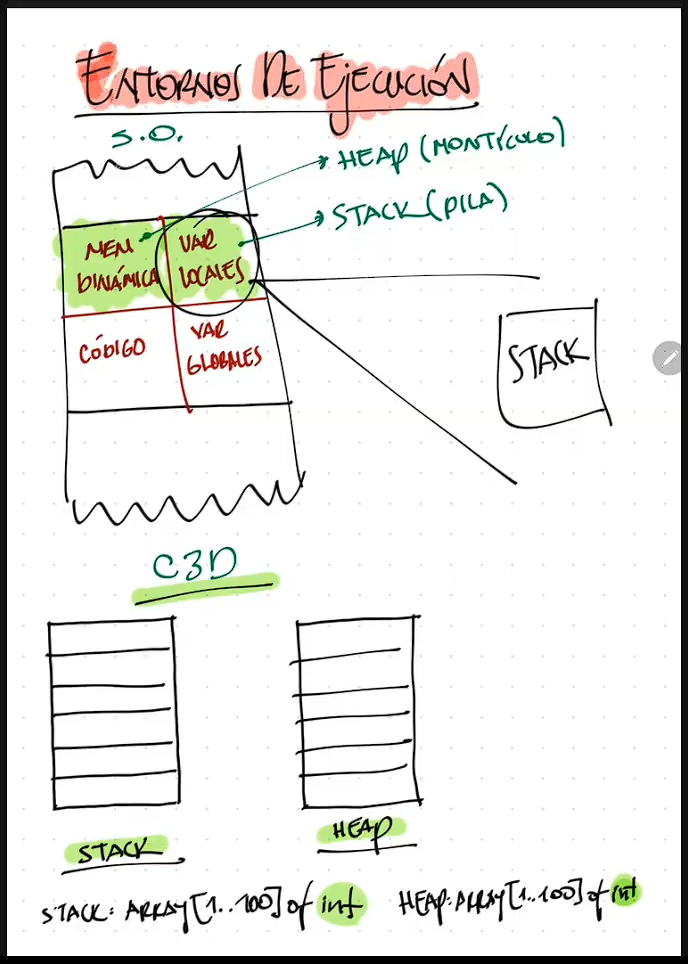 ENTORNOS DE EJECUCIÓN
S.O.
HEAP (MONTÍCULO)
STACK (PILA)
MEM
DINÁMICA
VAR
LOCALES
CÓDIGO
VAR
GLOBALES
STACK
C3D
STACK
HEAP
STACK: ARRAY[1..100] of int
HEAP: ARRAY[1..100] of int